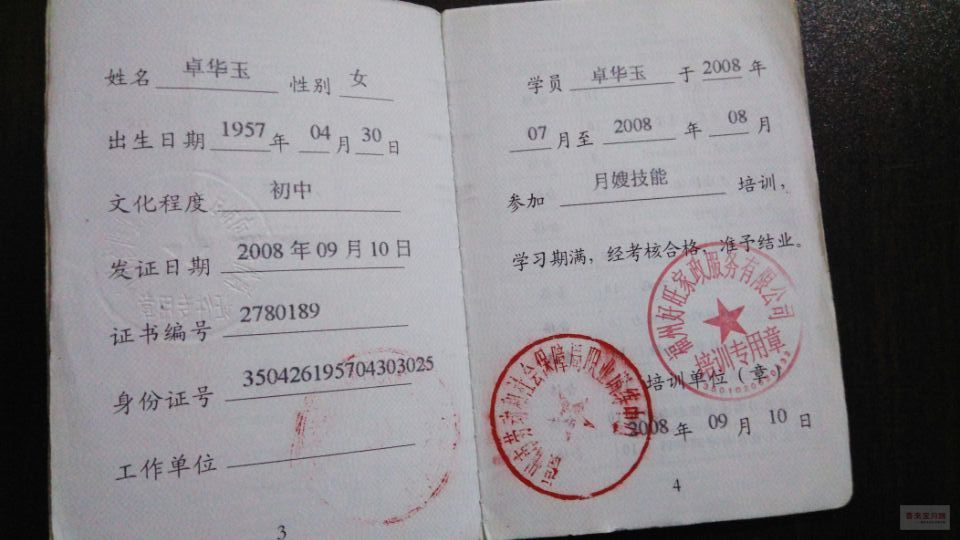 姓名 卓华玉 性别 女
出生日期 1957年 04月30日
文化程度 初中
发证日期 2008年09月10日
证书编号 2780189
身份证号 350426195704303025
工作单位
3
学员 卓华玉 于2008年
07月至 2008 年 08月
参加 月嫂技能 培训，
学习期满，经考核合格，准予结业。
福州好旺家政服务有限公司
培训专用章
培训单位（章）
2008年 09月 10日
4